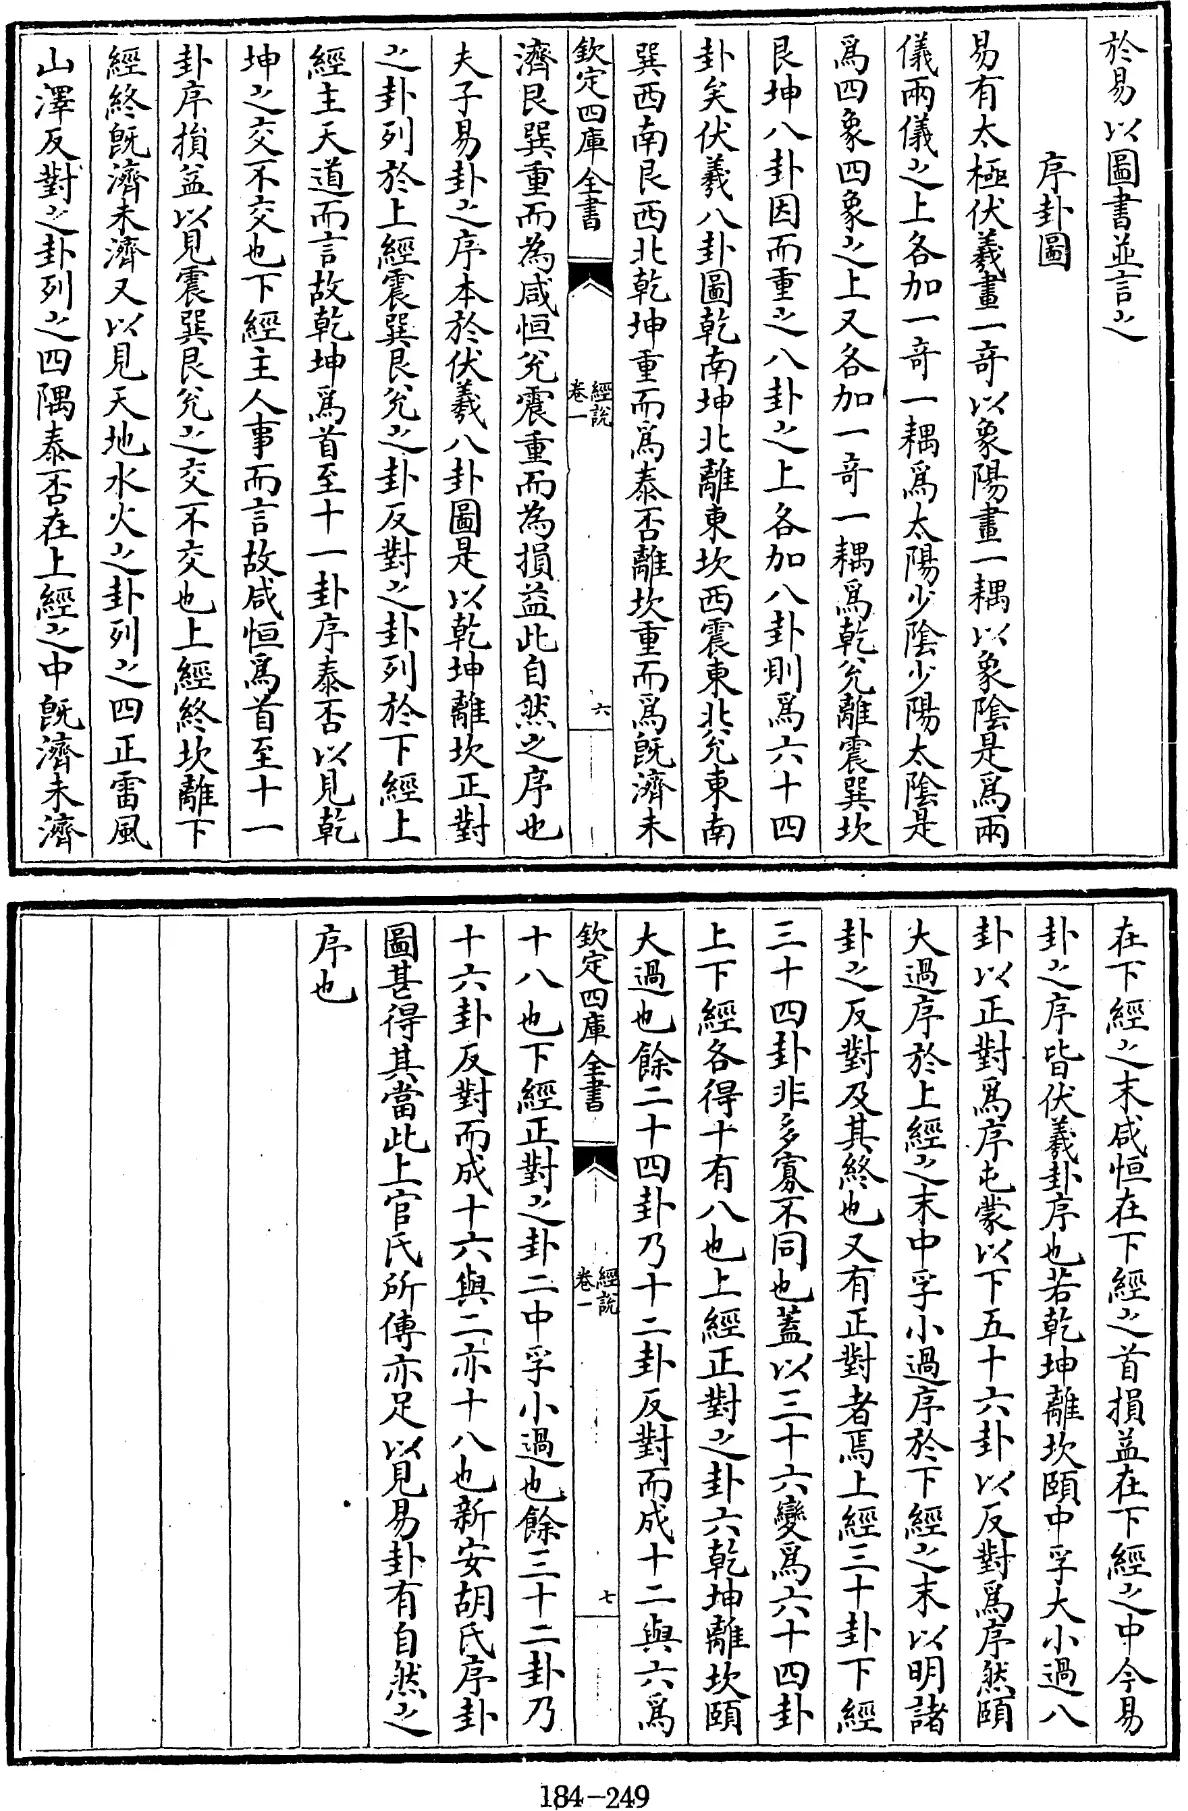 於易以圖書並言之
序卦圖
易有太極伏羲畫一奇以象陽畫一耦以象陰是爲兩
儀兩儀之上各加一奇一耦爲太陽少陰少陽太陰是
爲四象四象之上又各加一奇一耦爲乾兊離震巽坎
艮坤八卦因而重之八卦之上各加八卦則爲六十四
卦矣伏羲八卦圖乾南坤北離東坎西震東北兊東南
巽西南艮西北乾坤重而爲泰否離坎重而爲旣濟未
欽定四庫全書
經說
卷一
六
濟艮巽重而為咸恒兊震重而為損益此自然之序也
夫子易卦之序本於伏羲八卦圖是以乾坤離坎正對
之卦列於上經震巽艮兊之卦反對之卦列於下經上
經主天道而言故乾坤爲首至十一卦序泰否以見乾
坤之交不交也下經主人事而言故咸恒爲首至十一
卦序損益以見震巽艮兊之交不交也上經終坎離下
經終旣濟未濟又以見天地水火之卦列之四正雷風
山澤反對之卦列之四隅泰否在上經之中旣濟未濟
在下經之末咸恒在下經之首損益在下經之中今易
卦之序皆伏羲卦序也若乾坤離坎頤中孚大小過八
卦以正對爲序屯蒙以下五十六卦以反對爲序然頤
大過序於上經之末中孚小過序於下經之末以明諸
卦之反對及其終也又有正對者焉上經三十卦下經
三十四卦非多寡不同也蓋以三十六變爲六十四卦
上下經各得十有八也上經正對之卦六乾坤離坎頤
大過也餘二十四卦乃十二卦反對而成十二與六爲
欽定四庫全書
經說
卷一
七
十八也下經正對之卦二中孚小過也餘三十二卦乃
十六卦反對而成十六與二亦十八也新安胡氏序卦
圖甚得其當此上官氏所傳亦足以見易卦有自然之
序也
184-249